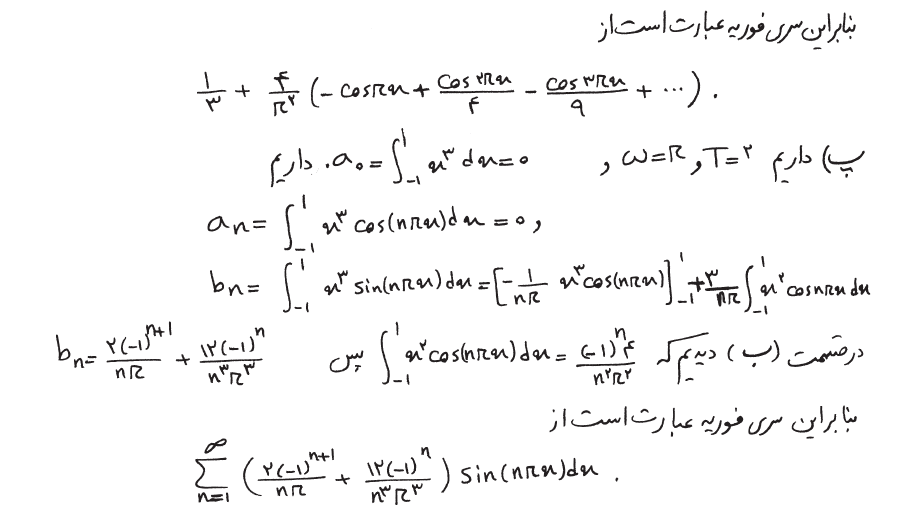 بنابراین سری فوریه عبارت است از
۱/۳ + ۴/π^۲ (- cosπx + cos ۲πx/۴ - cos ۳πx/۹ + ...) .
پ) داریم T=۲ و ω=π و a₀ = ∫_{-1}^{1} x^۳ dx = ۰ . داریم
a_n = ∫_{-1}^{1} x^۳ cos(nπx) dx = ۰ و
b_n = ∫_{-1}^{1} x^۳ sin(nπx) dx = [-1/nπ x^۳ cos(nπx)]_{-1}^{1} + ۳/nπ ∫_{-1}^{1} x^۲ cosnπx dx
در قسمت (ب) دیدیم که ∫_{-1}^{1} x^۲ cos(nπx) dx = (-1)^n ۴/n^۲π^۲ پس b_n = ۲(-1)^{n+1}/nπ + ۱۲(-1)^n/n^۳π^۳
بنابراین سری فوریه عبارت است از
∑_{n=1}^{∞} (۲(-1)^{n+1}/nπ + ۱۲(-1)^n/n^۳π^۳) sin(nπx)dx .